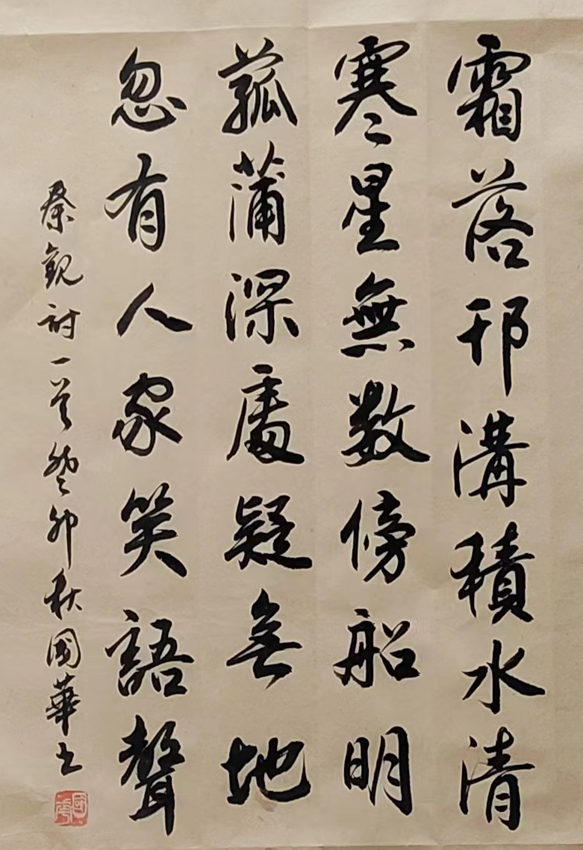 霜落邗溝積水清
寒星無數傍船明
菰蒲深處疑無地
忽有人家笑語聲
秦觀詩一首癸卯秋國華書